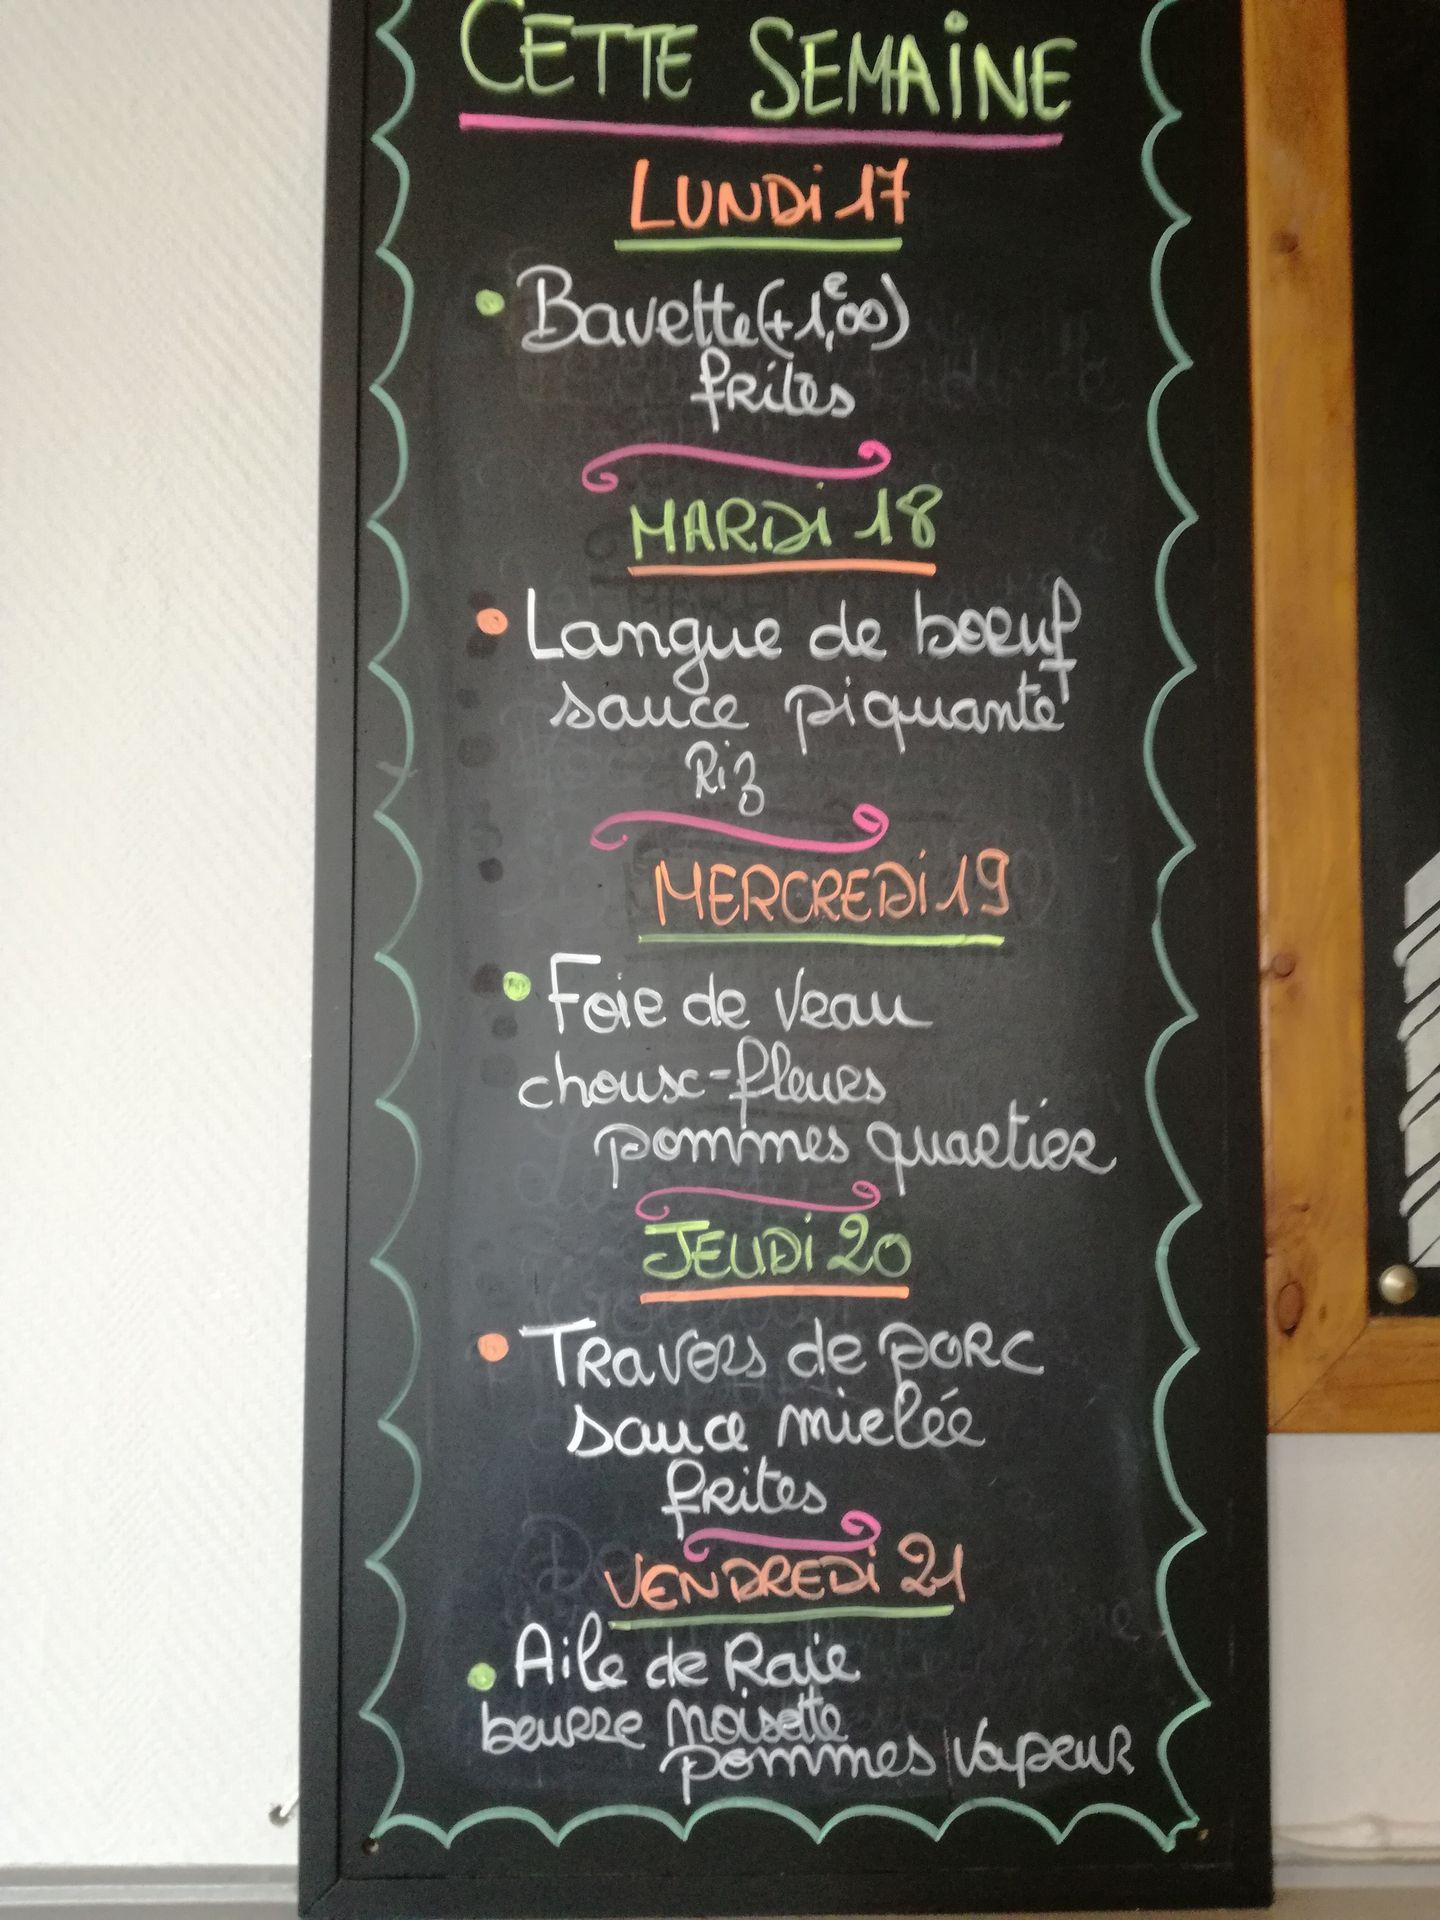 CETTE SEMAINE
LUNDi 17
Bavette (+1,€00)
frites
MARDi 18
Langue de boeuf
sauce piquante
Riz
MERCREDi 19
Foie de veau
choux-fleurs
pommes quartier
JEUDi 20
Travers de porc
sauce mielée
frites
VENDREDi 21
Aile de Raie
beurre noisette
pommes vapeur